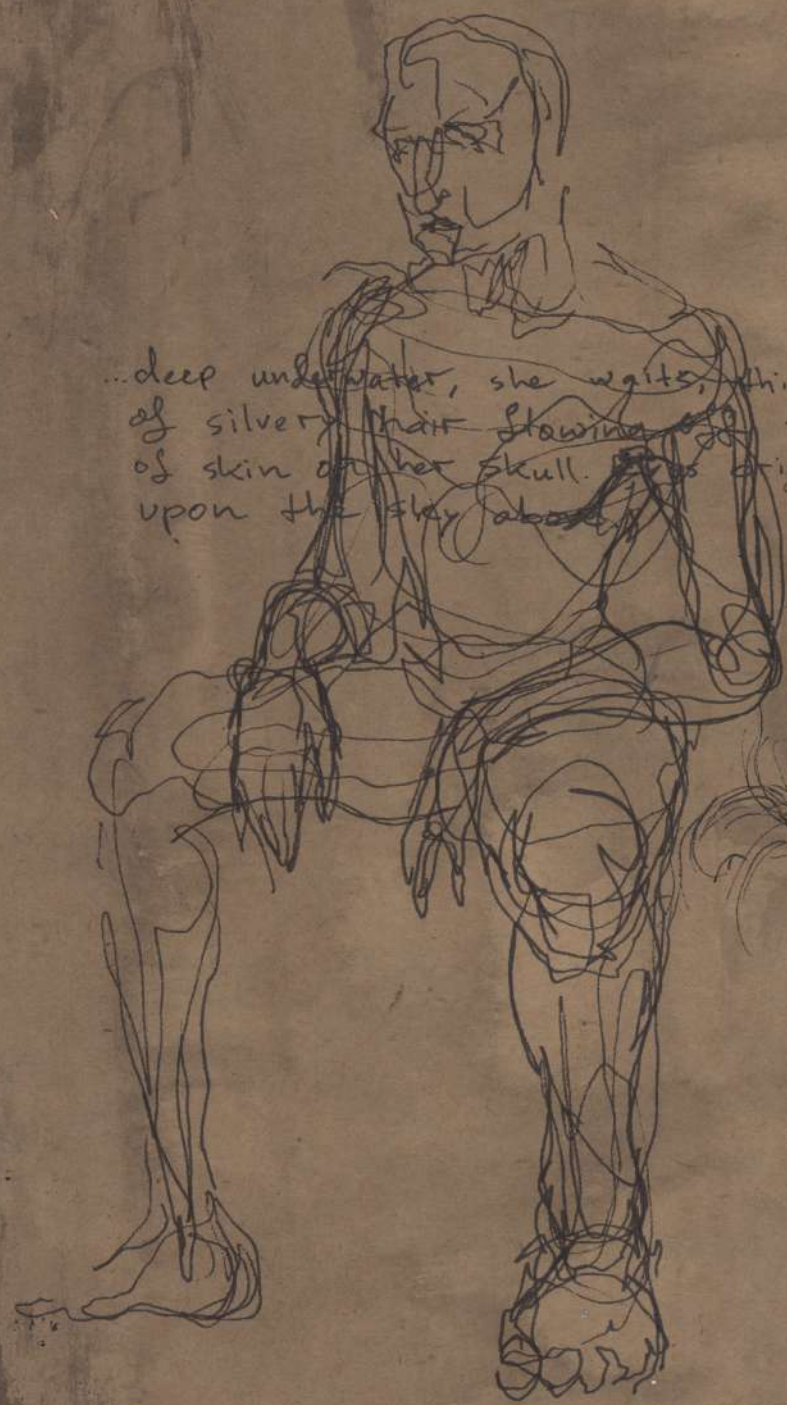 ...deep underwater, she waits, thi
of silvery hair flowing off
of skin on her skull. Eyes brig
upon the sky above.